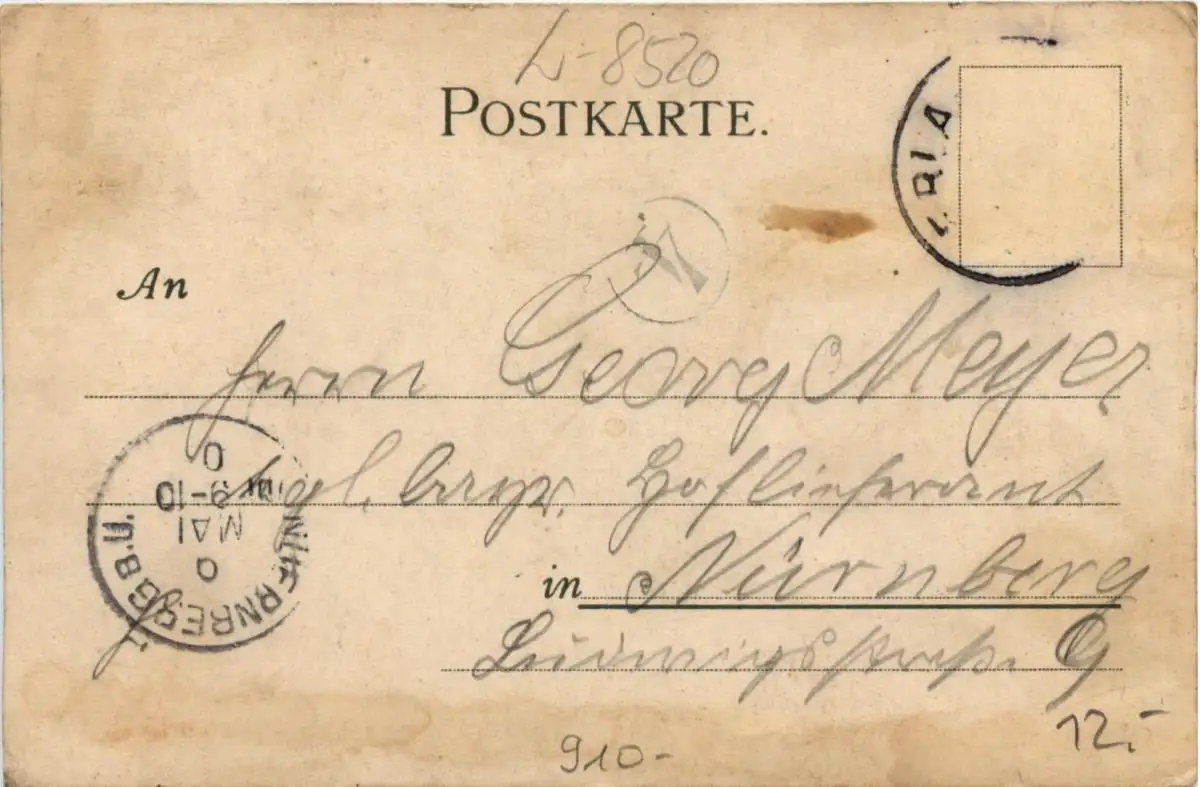 L-8520
POSTKARTE.
ERLA
An
Herrn Georg Meyer
kgl. bayr. Hoflieferant
in Nürnberg
Ludwigstraße 9
NUERNBERG
MAI
9-10
12.-
910-